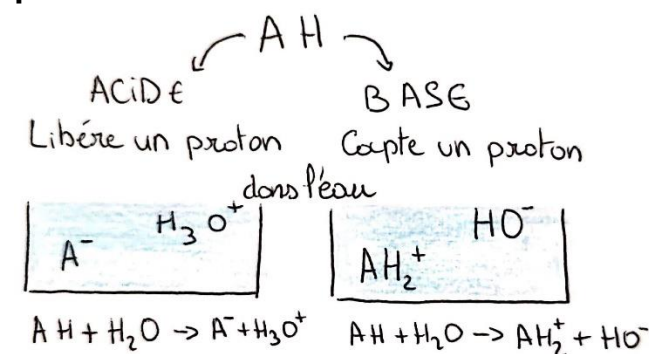 AH
ACIDE BASE
Libère un proton Capte un proton
dans l'eau
A⁻ H₃O⁺ AH₂⁺ HO⁻
AH + H₂O → A⁻ + H₃O⁺ AH + H₂O → AH₂⁺ + HO⁻